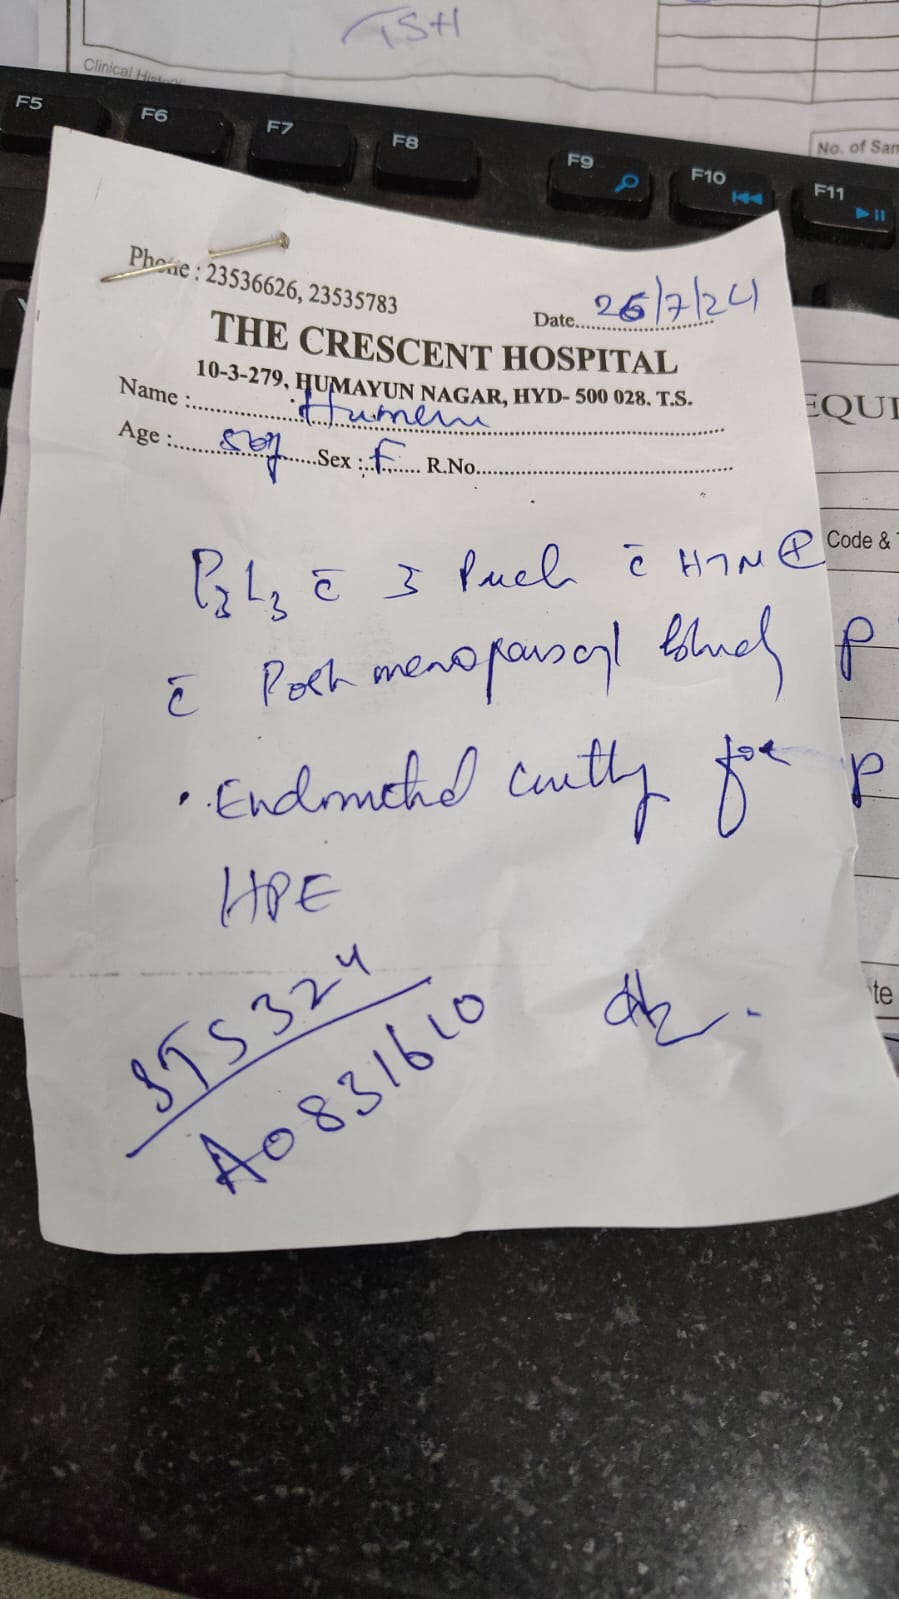 TSH
Clinical History
F5 F6 F7 F8 F9 F10 F11
No. of Sam
Phone : 23536626, 23535783
Date 26/7/24
THE CRESCENT HOSPITAL
10-3-279, HUMAYUN NAGAR, HYD- 500 028. T.S.
EQUI
Name : Humera
Age : Sex : F R.No.
P3L3 c̄ 3 c̄ HTN ⊕
Code &
c̄ Post menopausal P
Endometrial for P
HPE
te
A0831610